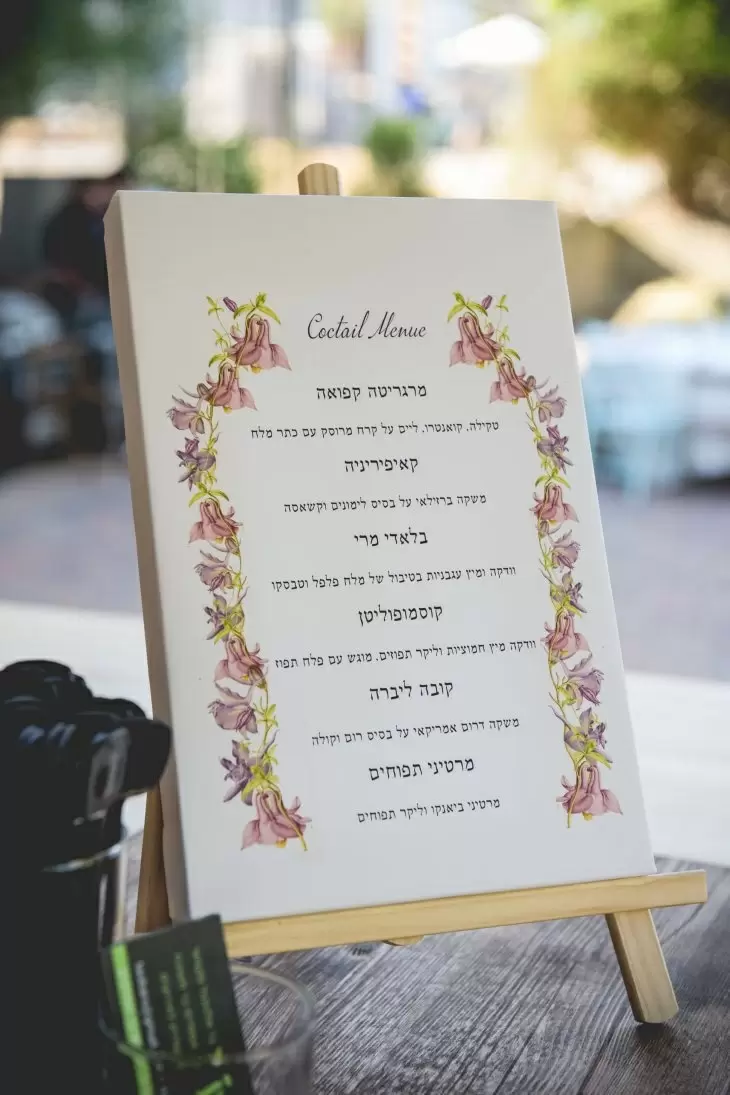 Coctail Menue
מרגריטה קפואה
טקילה, קואנטרו, ליים על קרח מרוסק עם כתר מלח
קאיפיריניה
משקה ברזילאי על בסיס לימונים וקשאסה
בלאדי מרי
וודקה ומיץ עגבניות בטיבול של מלח פלפל וטבסקו
קוסמופוליטן
וודקה מיץ חמוציות וליקר תפוזים, מוגש עם פלח תפוז
קובה ליברה
משקה דרום אמריקאי על בסיס רום וקולה
מרטיני תפוחים
מרטיני ביאנקו וליקר תפוחים